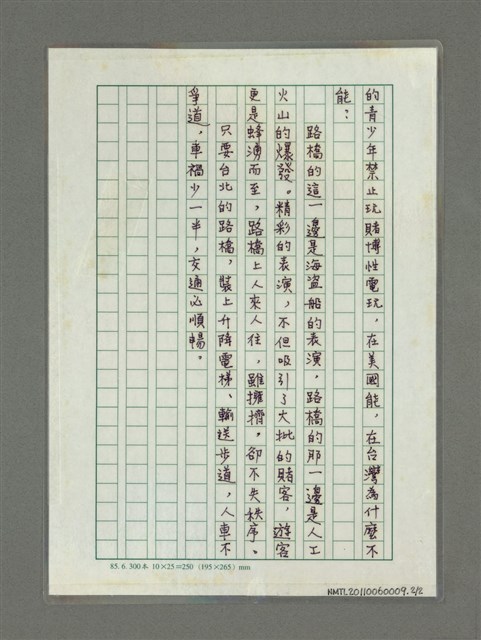 的青少年禁止玩賭博性電玩，在美國能，在台灣為什麼不
能？
路橋的這一邊是海盜船的表演，路橋的那一邊是人工
火山的爆發。精彩的表演，不但吸引了大批的賭客，遊客
更是蜂湧而至，路橋上人來人往，雖擁擠，卻不失秩序。
只要台北的路橋，裝上升降電梯、輸送步道，人車不
爭道，車禍少一半，交通必順暢。
85. 6. 300本 10×25=250 (195×265) mm
NMTL20110060009.2/2